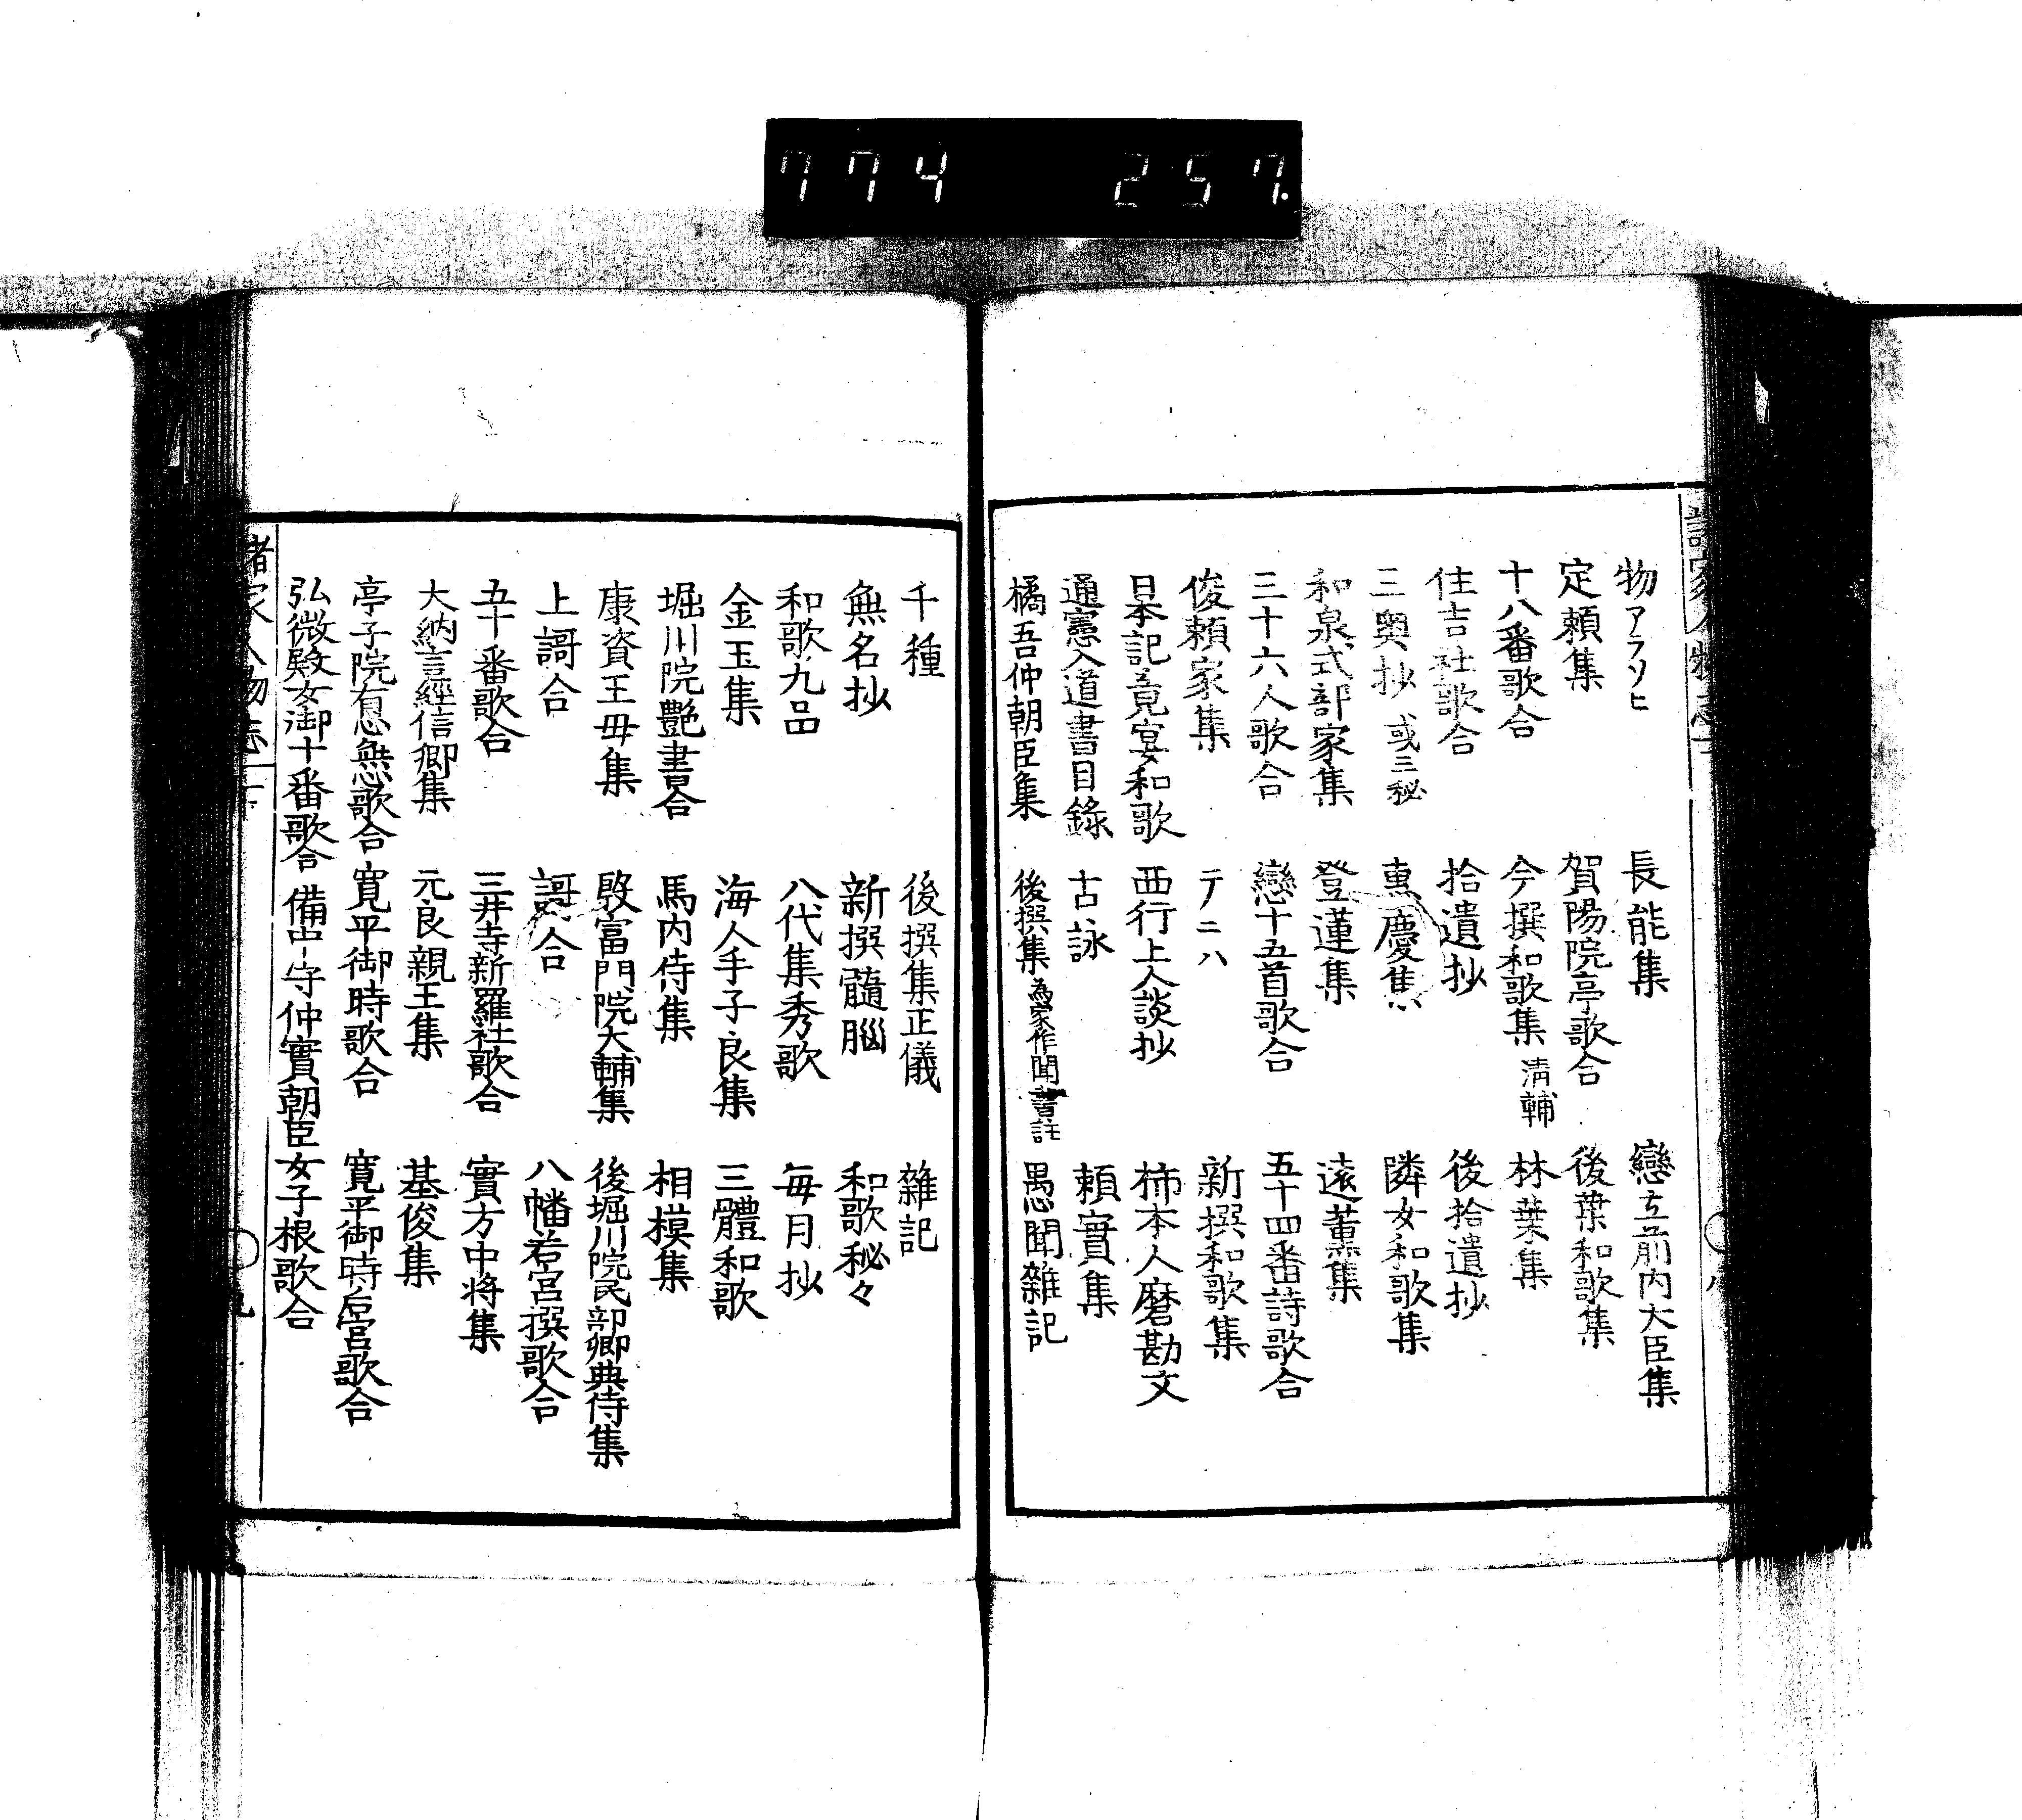 774 257.
物アラソヒ 長能集 戀五前内大臣集
定頼集 賀陽院亭歌合 後葉和歌集
十八番歌合 今撰和歌集 清輔 林葉集
住吉社歌合 拾遺抄 後拾遺抄
三奥抄 或三秘 惠慶集 隣女和歌集
和泉式部家集 登蓮集 遠薫集
三十六人歌合 戀十五首歌合 五十四番詩歌合
俊頼家集 テニハ 新撰和歌集
日本記竟宴和歌 西行上人談抄 柿本人磨勘文
通憲入道書目錄 古詠 頼實集
橘吾仲朝臣集 後撰集 為家作聞書註 愚聞雜記
千種 後撰集正儀 雜記
無名抄 新撰髓腦 和歌秘々
和歌九品 八代集秀歌 毎月抄
金玉集 海人手子良集 三體和歌
堀川院艷書合 馬内侍集 相摸集
康資王母集 殷富門院大輔集 後堀川院民部卿典侍集
上謌合 謌合 八幡若宮撰歌合
五十番歌合 三井寺新羅社歌合 實方中将集
大納言經信卿集 元良親王集 基俊集
亭子院有心無心歌合 寛平御時歌合 寛平御時后宮歌合
弘徽殿女御十番歌合 備中守仲實朝臣女子根歌合
諸家人物志